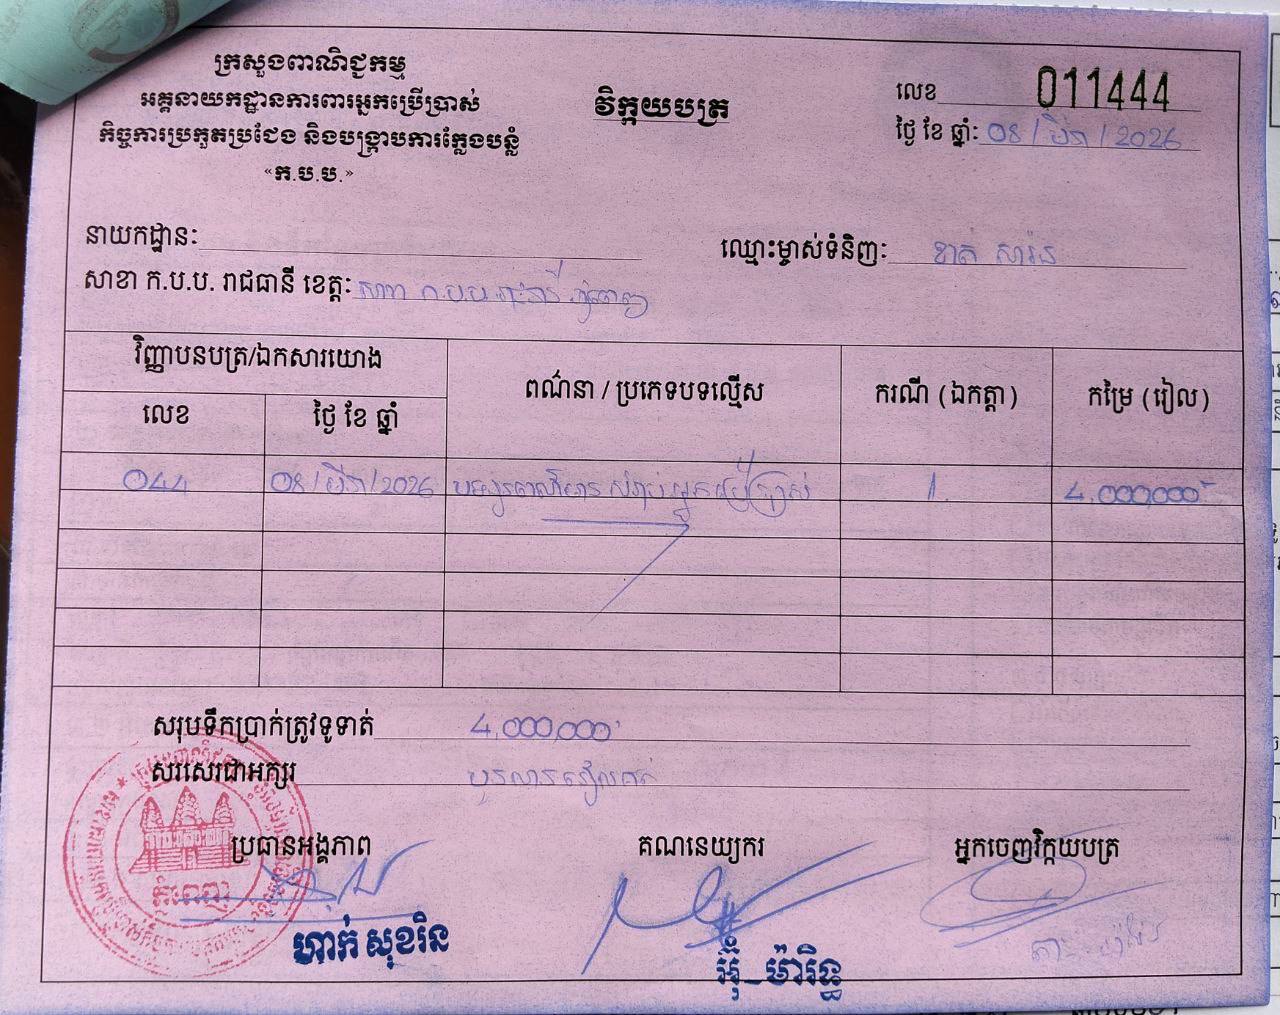 ក្រសួងពាណិជ្ជកម្ម
អគ្គនាយកដ្ឋានការពារអ្នកប្រើប្រាស់
កិច្ចការប្រកួតប្រជែង និងបង្ក្រាបការក្លែងបន្លំ
«ក.ប.ប.»
វិក្កយបត្រ
លេខ 011444
ថ្ងៃ ខែ ឆ្នាំ: 08 / មីនា / 2026
នាយកដ្ឋាន:
ឈ្មោះម្ចាស់ទំនិញ: ខាត់ សារ៉ន
សាខា ក.ប.ប. រាជធានី ខេត្ត: សាខា ក.ប.ប រាជធានី ភ្នំពេញ
វិញ្ញាបនបត្រ/ឯកសារយោង
ពណ៌នា / ប្រភេទបទល្មើស
ករណី (ឯកត្តា)
កម្រៃ (រៀល)
លេខ
ថ្ងៃ ខែ ឆ្នាំ
044 08 / មីនា / 2026 អ្នកប្រើប្រាស់ 1 4.000,000
សរុបទឹកប្រាក់ត្រូវទូទាត់ 4,000,000
សរសេរជាអក្សរ បួនលានរៀលគត់
ប្រធានអង្គភាព
គណនេយ្យករ
អ្នកចេញវិក្កយបត្រ
ភ្នំពេញ
ហាក់ សុខរិន
អ៊ុំ_ម៉ារិទ្ធ